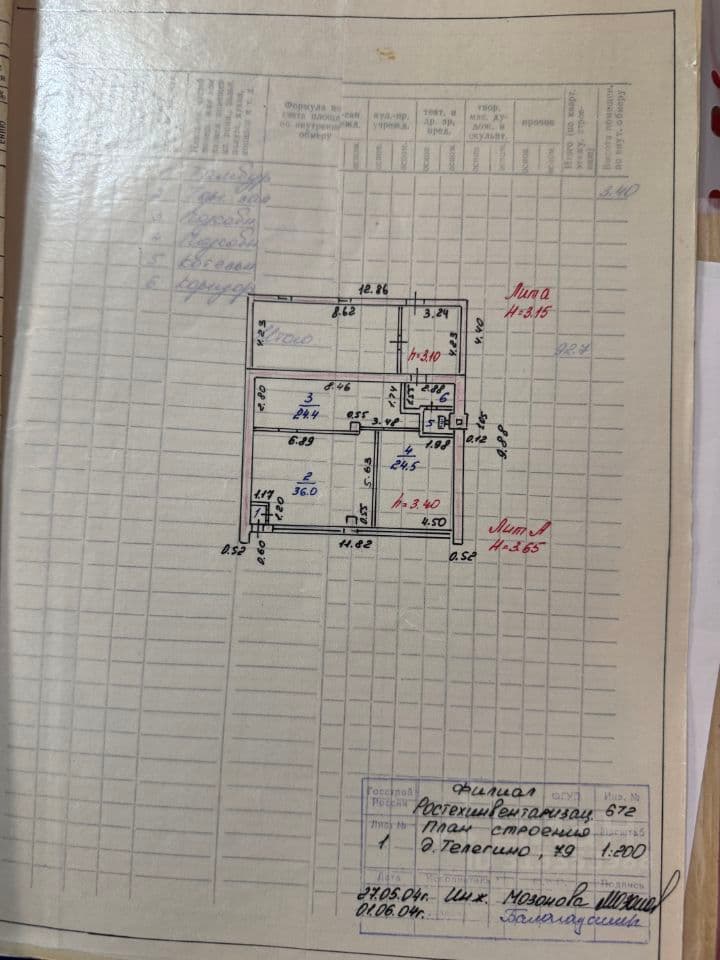 Формула по
счета площа
по внутренн
обмеру
кул.-пр.
учрежд.
теат. и
др. зр.
пред.
твор.
маc. ху-
дож. и
скульпт.
прочие
Итого (по кварт.
Высота помещен.
по внут. обмеру
1 Тамбур
2
3
4
5 Котельн
6 Коридор
3.40
Итого
92.7
12.86
Лит а
H=3.15
8.62
3.24
4.23
4.23
4.40
h=3.10
8.46
2.88
2.80
3
24.4
1.74
1.55
6
0.55
3.48
5
1.05
0.12
9.88
6.89
1.98
4
24.5
5.63
2
36.0
1.17
1
1.20
0.55
h=3.40
4.50
0.52
0.60
11.82
0.52
Лит А
H=3.65
Госстрой
России
Филиал
ФГУП
Инв. №
Ростехинвентаризац.
672
Лист №
План строения
Масштаб
1
д. Телегино, 79
1:200
Дата
Исполнитель
Подпись
27.05.04г. Инж. Мозонова
01.06.04г.